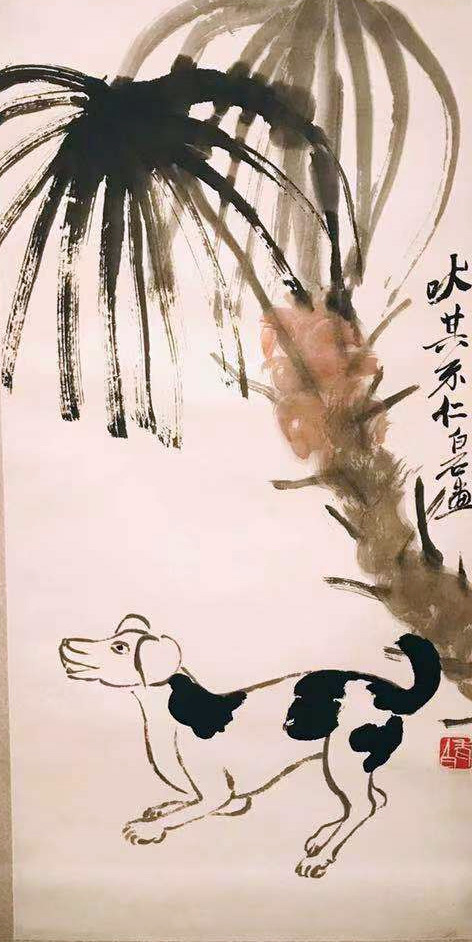 吠其不仁白石畫